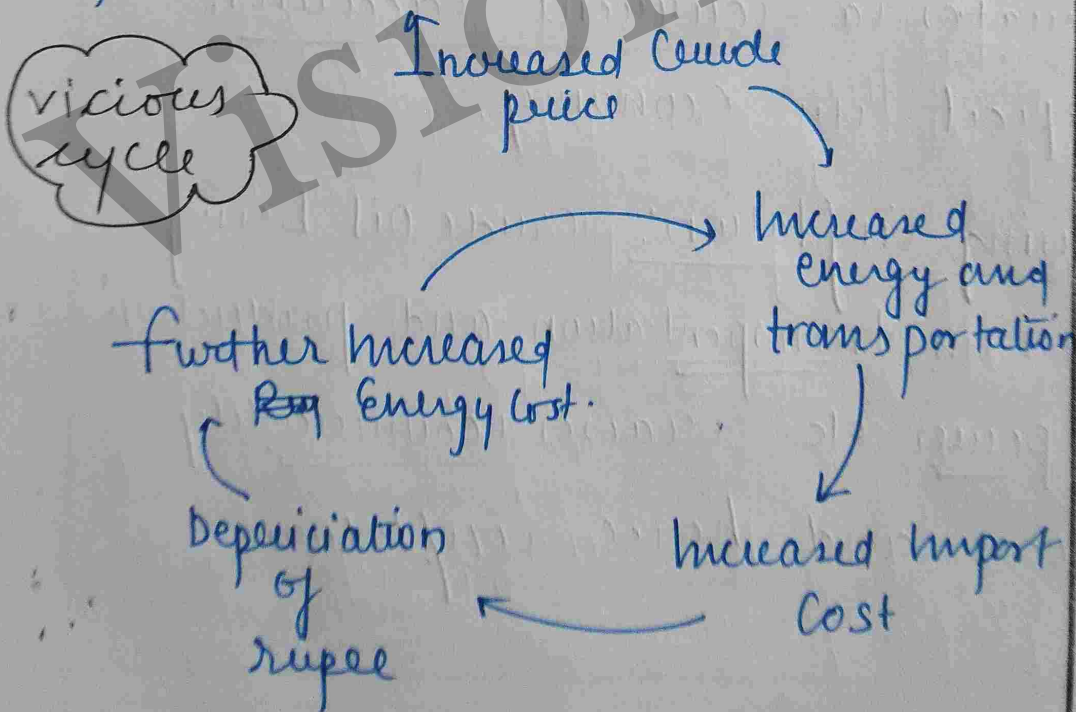 vicious
cycle
Increased Crude
price
Increased
energy and
transportation
Increased Import
Cost
Depriciation
of
rupee
further Increased
Energy Cost.
Vision